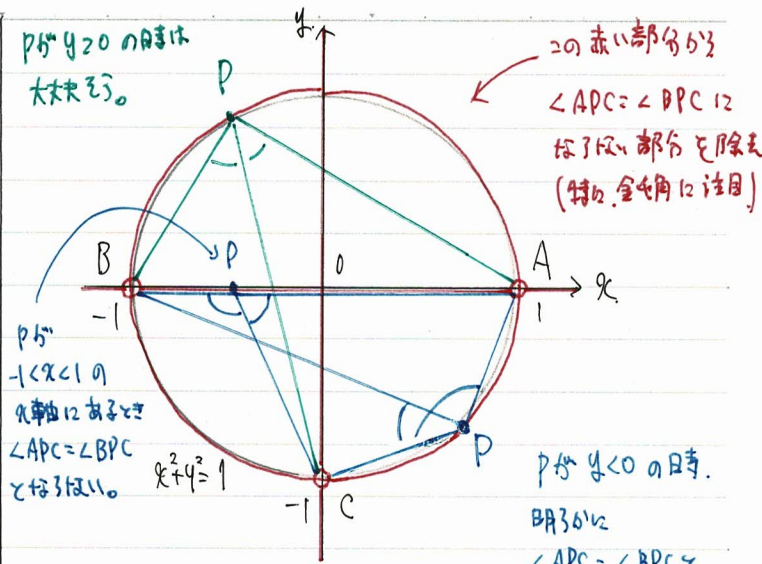 Pが y≥0 の時は
大丈夫そう。
y
この赤い部分から
∠APC=∠BPC に
ならない部分を除去
(特に、鈍角に注目)
P
B
P
0
A
x
-1
1
Pが
-1<x<1の
x軸にあるとき
∠APC=∠BPC
とならない。
x²+y²=1
-1
C
P
Pが y<0 の時、
明らかに
∠APC=∠BPCと